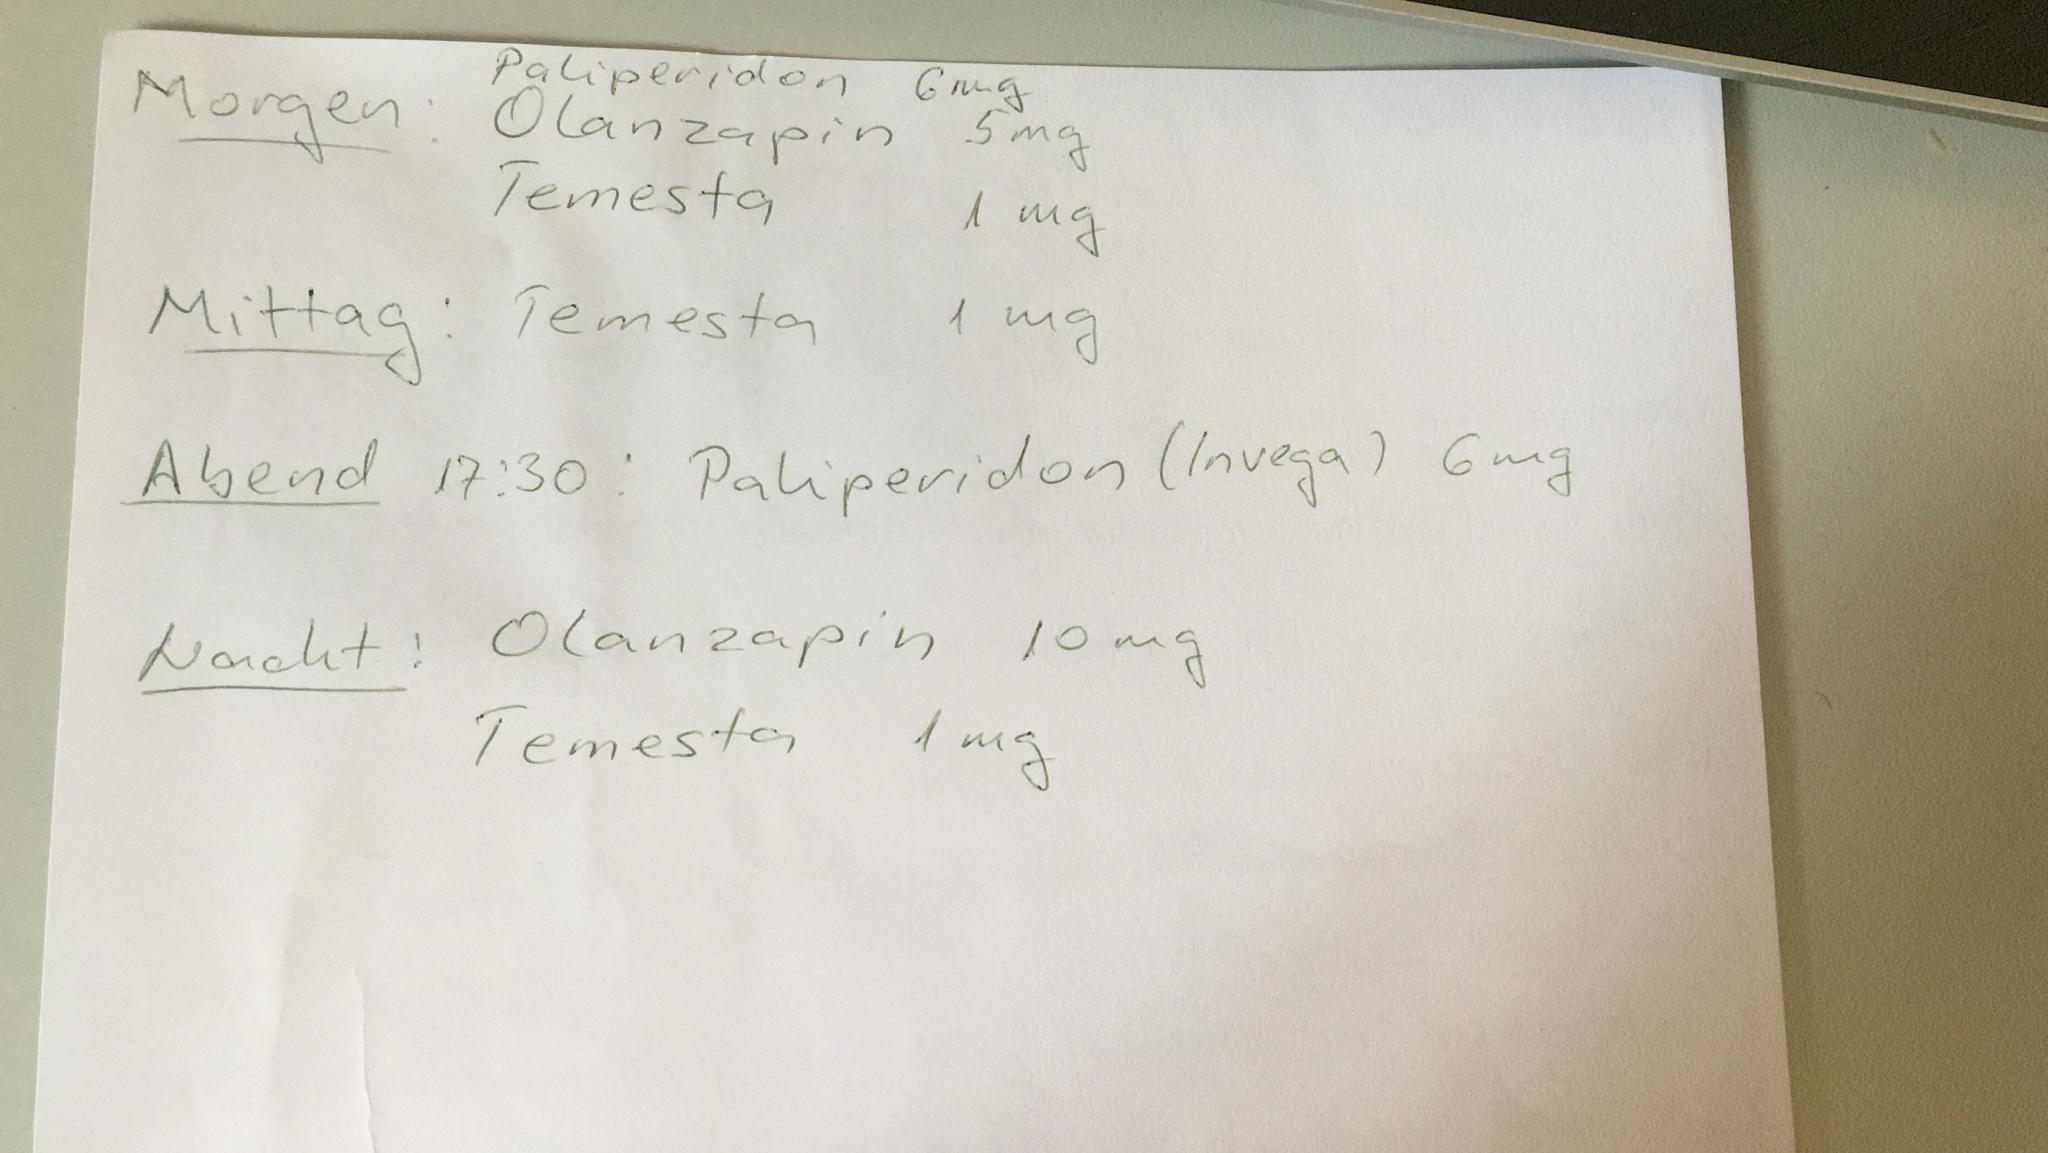 Paliperidon 6mg
Morgen: Olanzapin 5mg
Temesta 1 mg
Mittag: Temesta 1 mg
Abend 17:30: Paliperidon (Invega) 6mg
Nacht: Olanzapin 10mg
Temesta 1mg